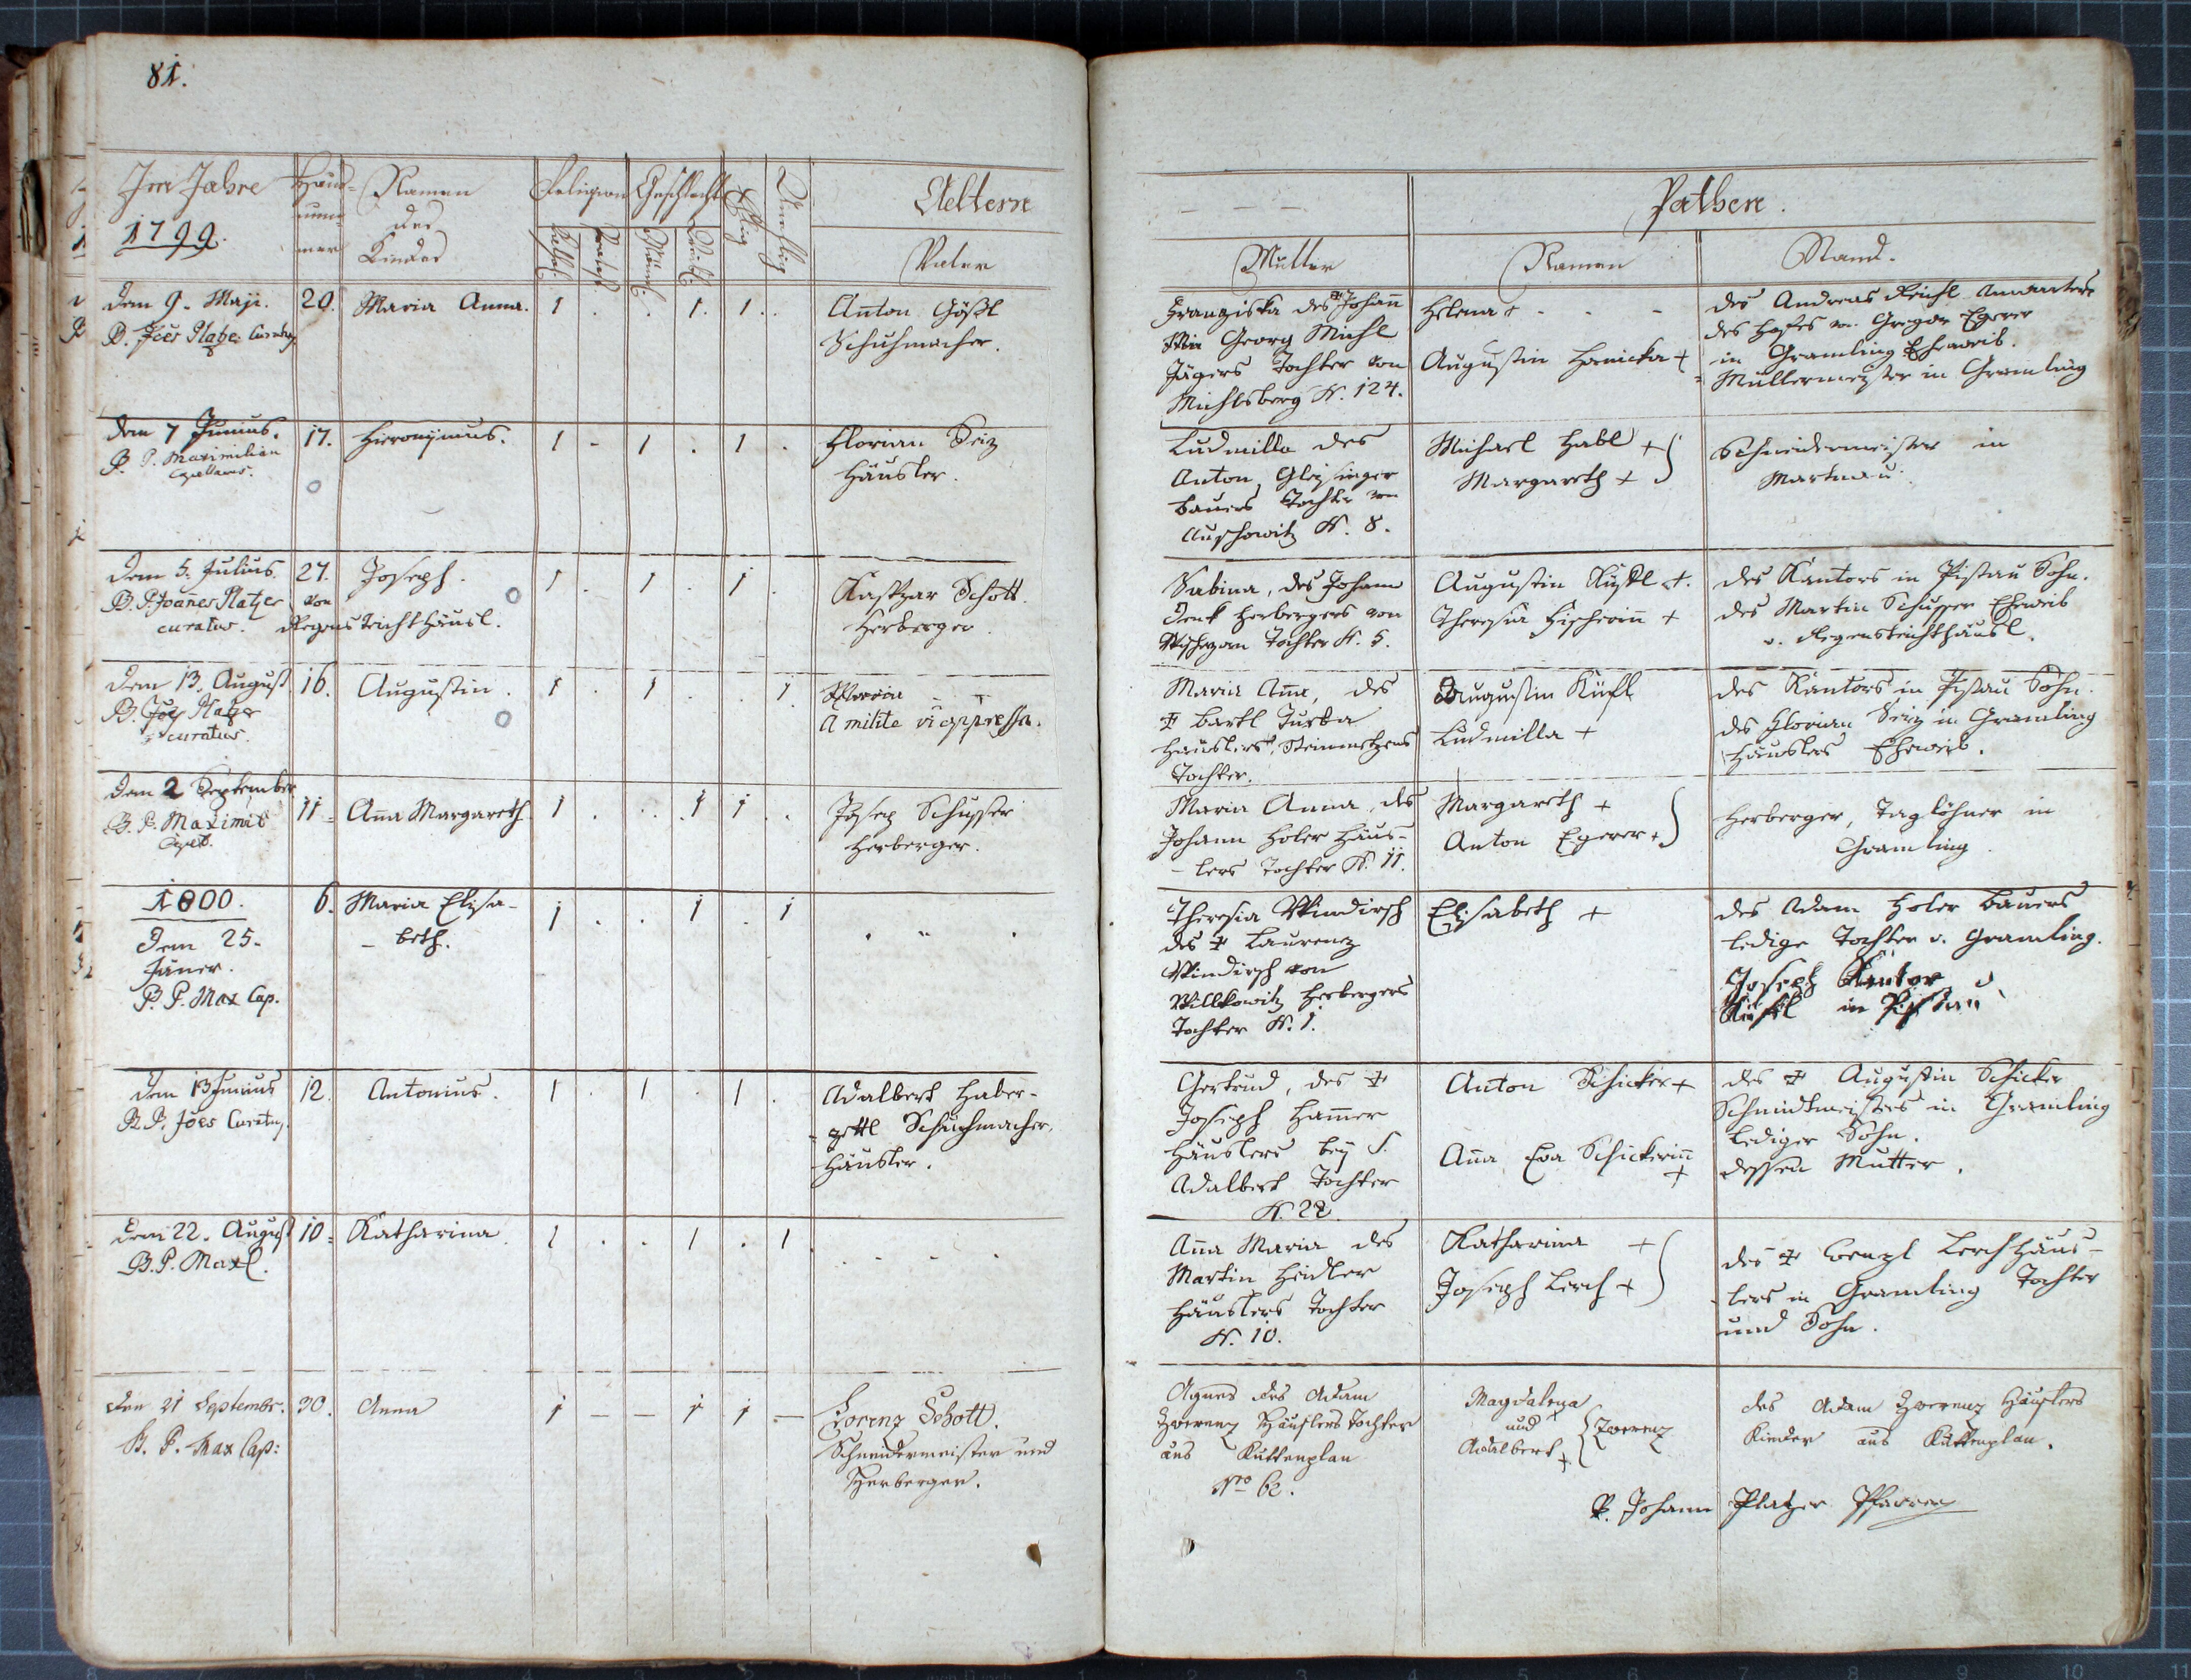 81.
Im Jahre
1799.
Haus=
num=
mer
Namen
des
Kindes
Religion
Kathol:
Protest:
Geschlecht
Männl:
Weibl:
Ehlig
Unehlig
Aeltern
Vater
Mutter
Pathen.
Namen
Stand.
Dem 9. Maji.
B. Joes Platzer Curatus
20.
Maria Anna.
1 . . 1. 1. .
Anton Gößl
Schuhmacher.
Franziska des Johann
Georg Michl
Jägers Tochter von
Michlsberg N. 124.
Helena + - - -
Augustin Hornicka +
des Andreas Reichl
des Hofes von Gregor Egerer
in Gramling Eheweib.
Müllermeister in Gramling
Dem 7 Junius.
B. P. Maximilian
Capellanus.
17.
Hieronymus.
1 - 1 . 1 .
Florian Seiz
Häusler.
Ludmilla des
Anton Gleissinger
Bauers Tochter von
Auschowitz N. 8.
Michael Habl +
Margareth +
Schneidermeister in
Martnau.
Dem 5. Julius.
B. P. Joanes Platzer
curatus.
27.
von
Regensteicht Häusl.
Joseph.
1 . 1 . 1 .
Kaspar Schott
Herberger.
Sabina, des Johann
Denk Herbergers von
Tochter N. 5.
Augustin Küstl +.
Theresia Fischerin +
des Kantors in Pistau Sohn.
des Martin Schusser Eheweib
v. Regensteichthäusl.
Dem 13. August
B. Joes Platzer
curatus.
16.
Augustin.
1 . 1 . . 1.
A milite vi oppressa.
Maria Anna, des
+ Bartl Turba
Häuslers, Steinmetzens
Tochter.
Augustin Küstl
Ludmilla +
des Kantors in Pistau Sohn.
des Florian Seiz in Gramling
Häuslers Eheweib.
Dem 2 September
B. P. Maximil
Capel.
11
Ana Margareth.
1 . . . 1 1 . .
Joseph Schusser
Herberger.
Maria Anna, des
Johann Holer Häus-
- lers Tochter N. 11.
Margareth +
Anton Egerer +
Herberger, Taglöhner in
Gramling.
1800.
Dem 25.
Jäner.
B. P. Max Cap.
6.
Maria Elisa-
- beth.
1 . . 1 . 1
Theresia Windirsch
des + Laurenz
Windirsch von
Wilkowitz Herbergers
Tochter N. 1.
Elisabeth +
des Adam Holer Bauers
ledige Tochter v. Gramling.
Joseph Kantor
Küstl in Pistau
Dem 13 Junius
B. P. Joes Curatus.
12.
Antonius.
1 . 1 . 1 .
Adalbert Haber-
- zettl Schuhmacher,
Häusler.
Gertrud, des +
Joseph Hammer
Häuslers bey S.
Adalbert Tochter
N. 22.
Anton Schicker +
Ana Eva Schickerin
+
des + Augustin Schicker
Schmidtmeisters in Gramling
lediger Sohn.
dessen Mutter.
Dem 22. August
B. P. Maxl.
10
Katharina.
1 . . 1 . 1
Ana Maria des
Martin Heidler
Häuslers Tochter
N. 10.
Katharina +
Joseph Lerch +
des + Wenzl Lerch Häus-
- lers in Gramling Tochter
und Sohn.
Den 21 Septembr.
B. P. Max Cap:
30.
Anna
1 - - 1 1 -
Lorenz Schott.
Schneidermeister und
Herberger.
Agnes des Adam
Zwerenz Häuslers Tochter
aus Kuttenplan
Nro 62.
Magdalena
und
Adalbert +
Zwerenz
des Adam Zwerenz Häuslers
Kinder aus Kuttenplan.
P. Johann Platzer Pfarrer